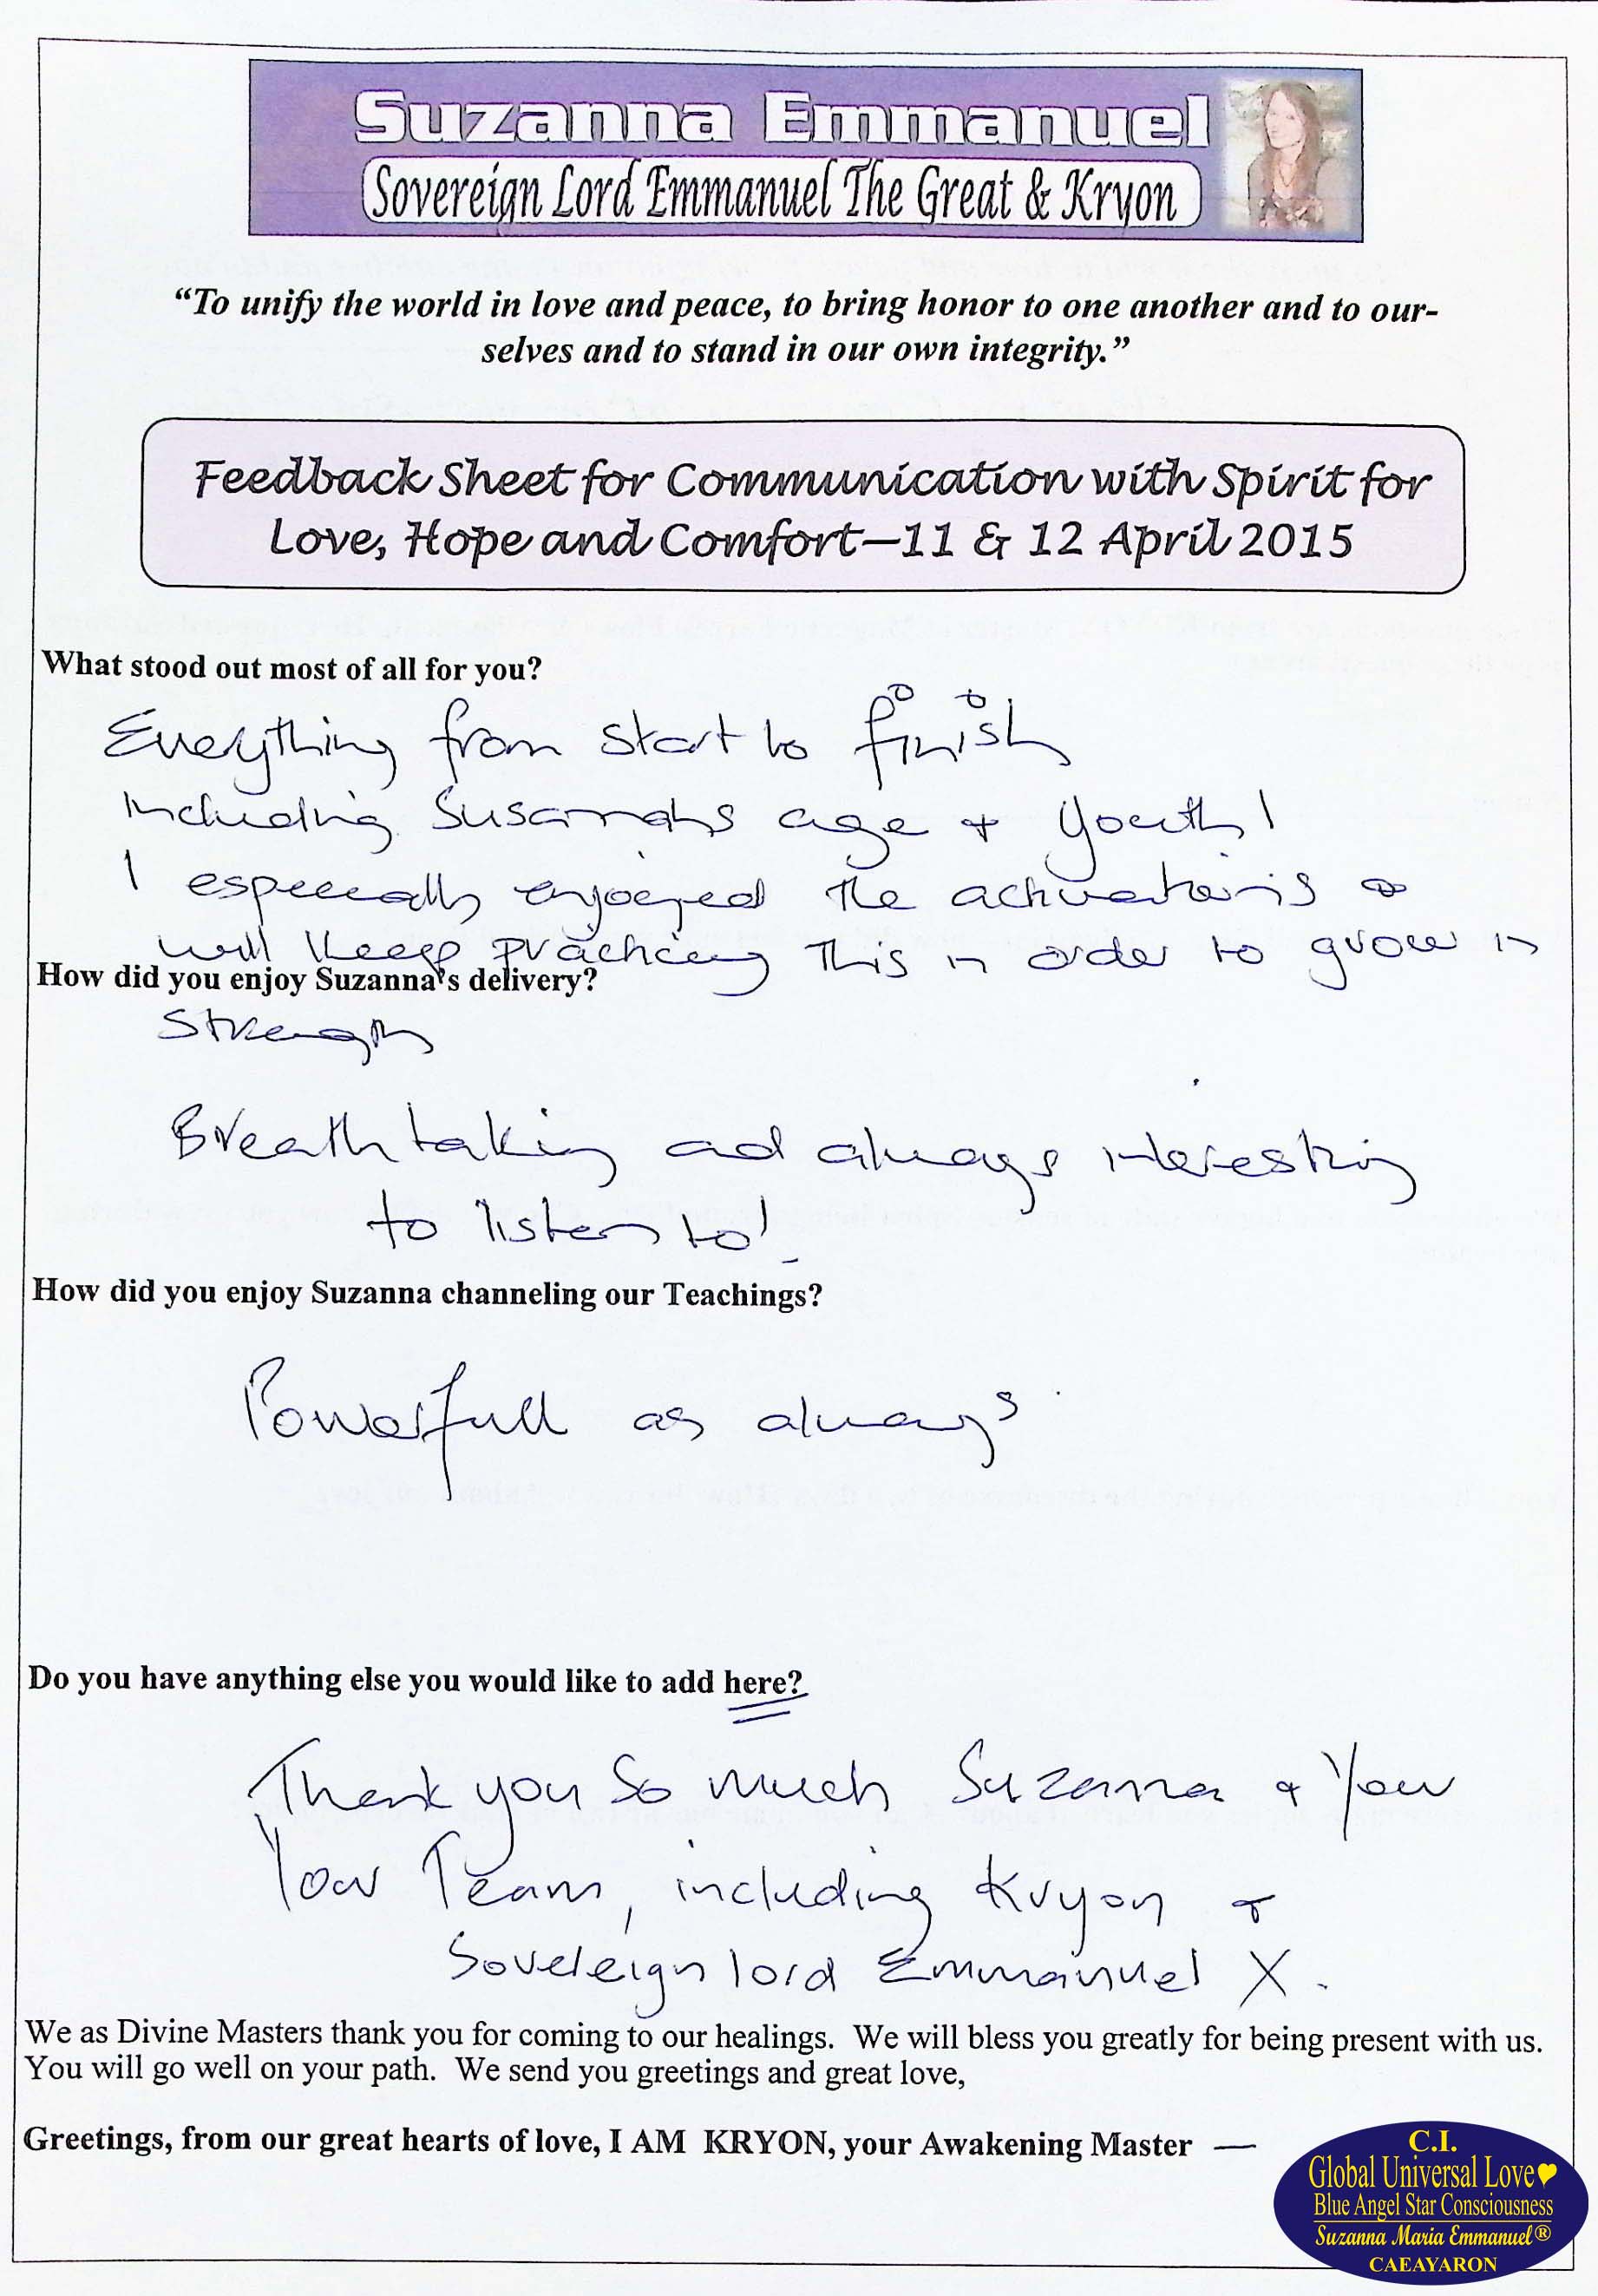 Suzanna Emmanuel
Sovereign Lord Emmanuel The Great & Kryon
“To unify the world in love and peace, to bring honor to one another and to our-
selves and to stand in our own integrity.”
Feedback Sheet for Communication with Spirit for
Love, Hope and Comfort—11 & 12 April 2015
What stood out most of all for you?
Everything from start to finish
Including Susannahs age + youth!
I especially enjoyed the activations &
will keep practicing This in order to grow in
How did you enjoy Suzanna's delivery?
Strength
Breathtaking and always interesting
to listen to!
How did you enjoy Suzanna channeling our Teachings?
Powerfull as always
Do you have anything else you would like to add here?
Thank you So much Suzanna & Your
Your Team, including Kryon &
Sovereign lord Emmanuel X.
We as Divine Masters thank you for coming to our healings. We will bless you greatly for being present with us.
You will go well on your path. We send you greetings and great love,
Greetings, from our great hearts of love, I AM KRYON, your Awakening Master —
C.I.
Global Universal Love
Blue Angel Star Consciousness
Suzanna Maria Emmanuel®
CAEAYARON